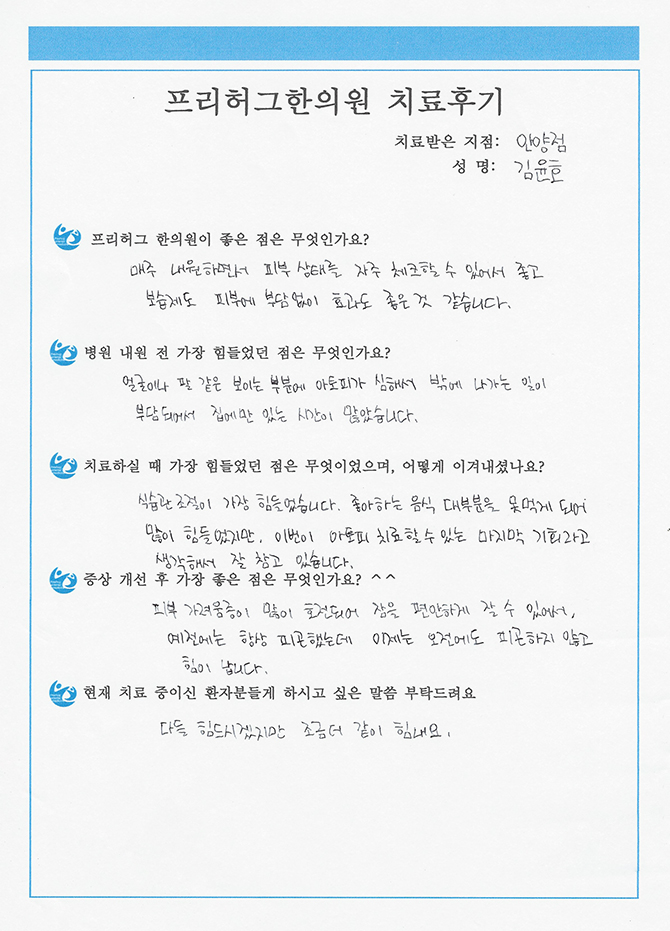 프리허그한의원 치료후기
치료받은 지점: 안양점
성 명: 김윤호
프리허그 한의원이 좋은 점은 무엇인가요?
매주 내원하면서 피부 상태를 자주 체크할 수 있어서 좋고
보습제도 피부에 부담없이 효과도 좋은 것 같습니다.
병원 내원 전 가장 힘들었던 점은 무엇인가요?
얼굴이나 팔 같은 보이는 부분에 아토피가 심해서 밖에 나가는 일이
부담되어서 집에만 있는 시간이 많았습니다.
치료하실 때 가장 힘들었던 점은 무엇이었으며, 어떻게 이겨내셨나요?
식습관 조절이 가장 힘들었습니다. 좋아하는 음식 대부분을 못먹게 되어
많이 힘들었지만, 이번이 아토피 치료할 수 있는 마지막 기회라고
생각해서 잘 참고 있습니다.
증상 개선 후 가장 좋은 점은 무엇인가요? ^^
피부 가려움증이 많이 호전되어 잠을 편안하게 잘 수 있어서,
예전에는 항상 피곤했는데 이제는 오전에도 피곤하지 않고
힘이 납니다.
현재 치료 중이신 환자분들게 하시고 싶은 말씀 부탁드려요
다들 힘드시겠지만 조금더 같이 힘내요.